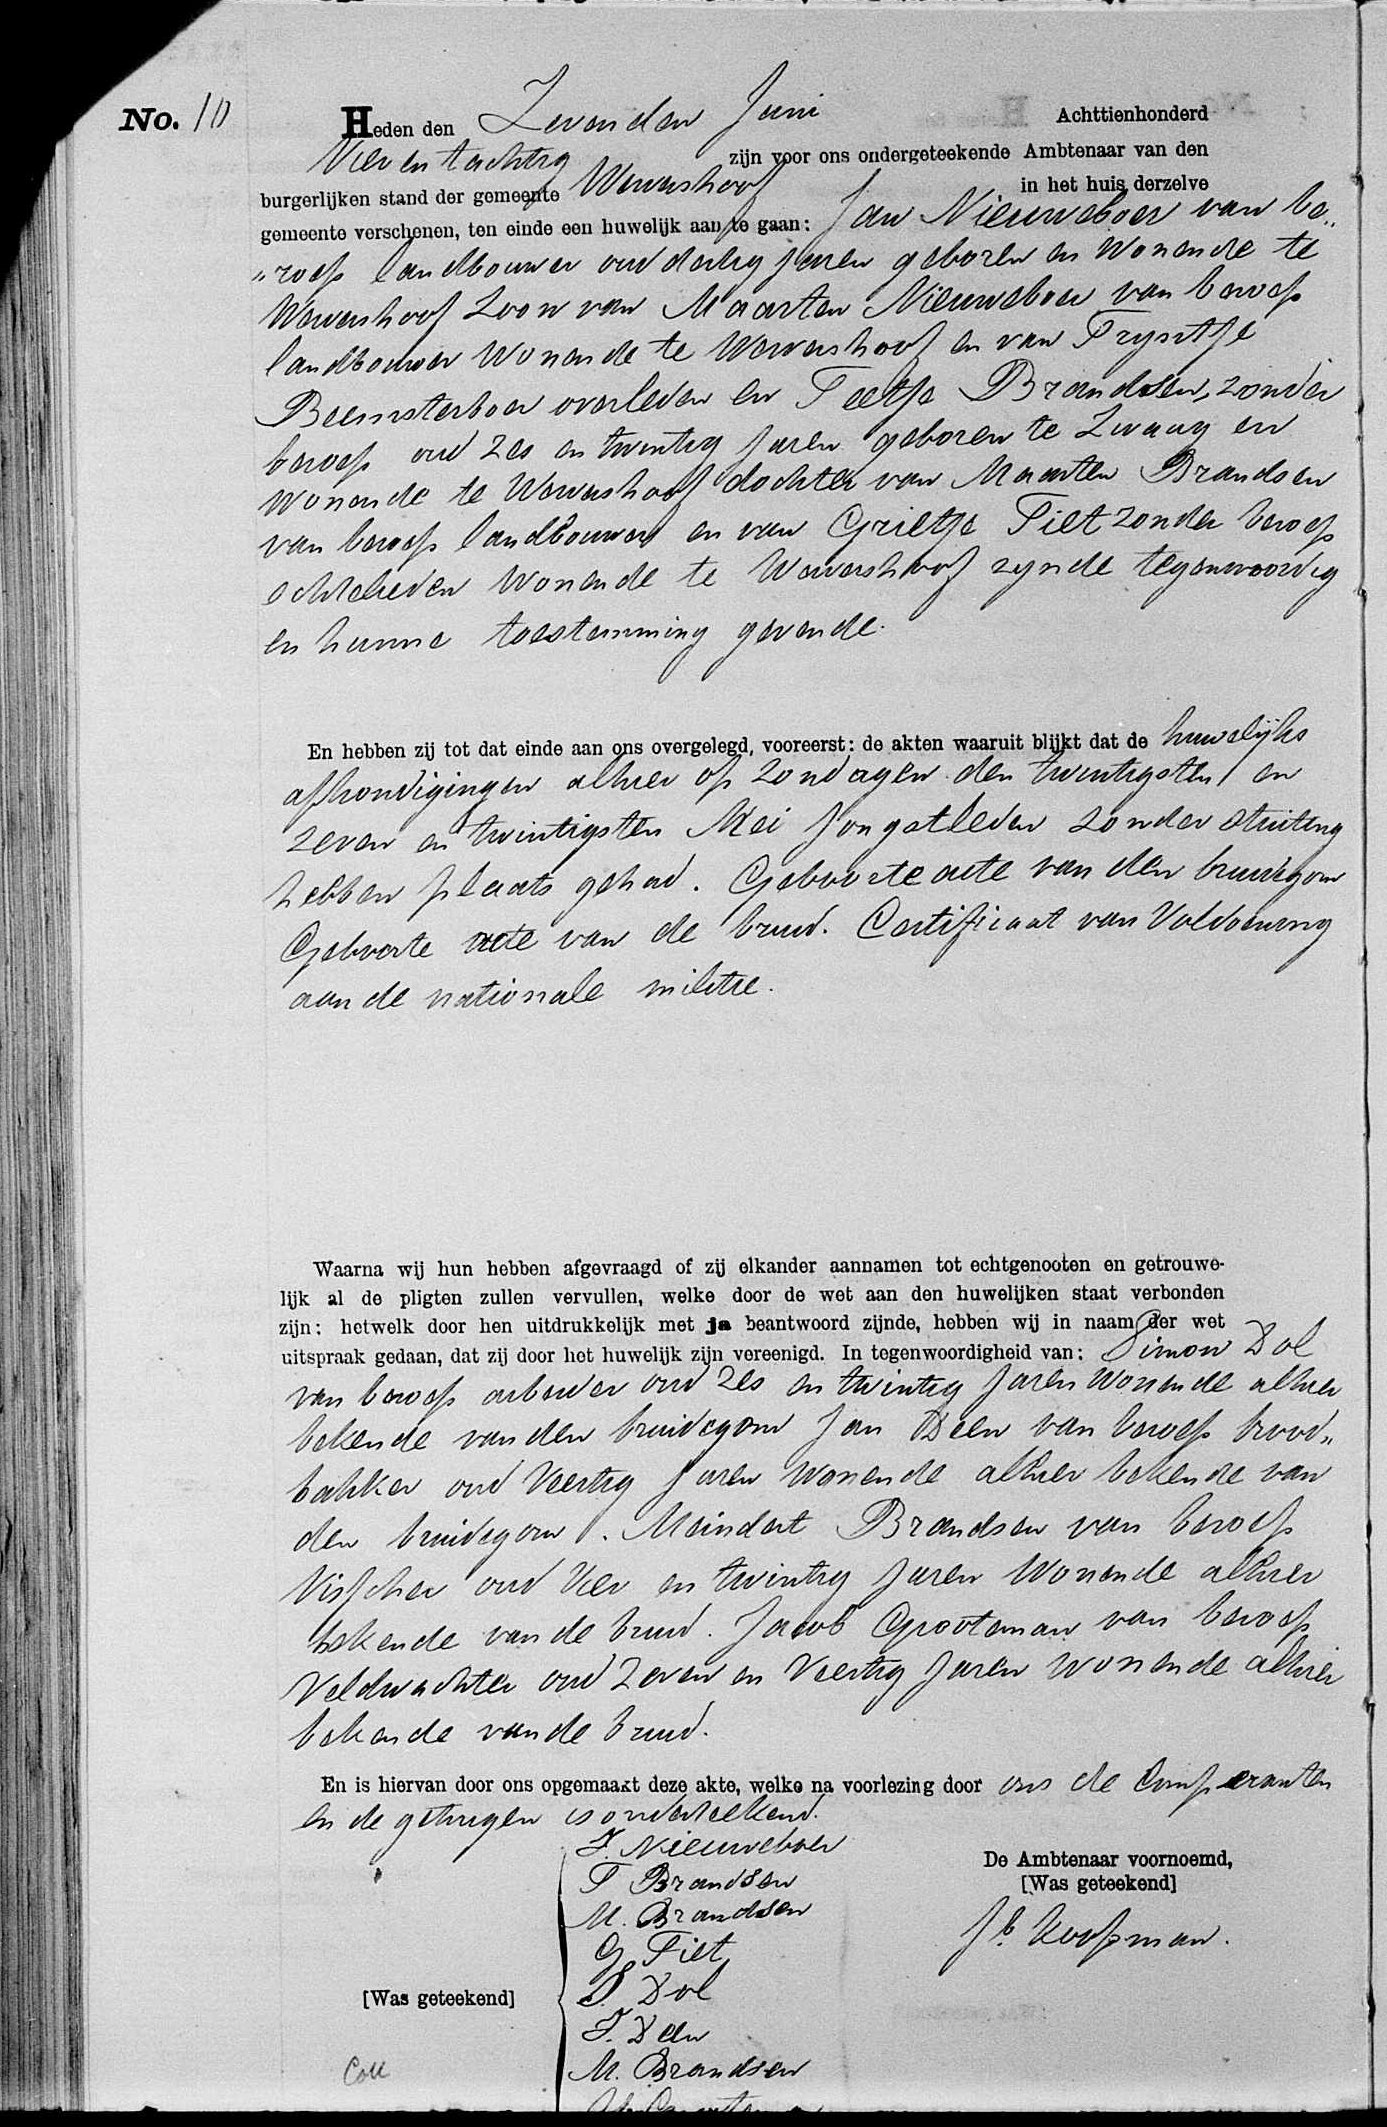 No. 10
Heden den Zevenden Juni Achttienhonderd
Vier en tachtig zijn voor ons ondergeteekende Ambtenaar van den
burgerlijken stand der gemeente Wervershoof in het huis derzelve
gemeente verschenen, ten einde een huwelijk aan te gaan: Jan Nieuweboer van be„
„roep landbouwer oud dertig jaren geboren en Wonende te
Wervershoof Zoon van Maarten Nieuweboer van beroep
landbouwer Wonende te Wervershoof en van Trijntje
Beemsterboer overleden en Teetje Brandsen, zonder
beroep oud Zes en twintig jaren geboren te Zwaag en
Wonende te Wervershoof dochter van Maarten Brandsen
van beroep landbouwer en van Grietje Tiet zonder beroep
echtelieden Wonende te Wervershoof zynde tegenwoordig
en hunne toestemming gevende.
En hebben zij tot dat einde aan ons overgelegd, vooreerst: de akten waaruit blijkt dat de huwelijks
afkondigingen alhier op Zondagen den twintigsten en
zeven en twintigsten Mei jongstleden zonder stuiting
hebben plaats gehad. Geboorte acte van den bruidegom
Geboorte acte van de bruid. Certificaat van Voldoening
aan de nationale militie.
Waarna wij hun hebben afgevraagd of zij elkander aannamen tot echtgenooten en getrouwe-
lijk al de pligten zullen vervullen, welke door de wet aan den huwelijken staat verbonden
zijn: hetwelk door hen uitdrukkelijk met ja beantwoord zijnde, hebben wij in naam der wet
uitspraak gedaan, dat zij door het huwelijk zijn vereenigd. In tegenwoordigheid van: Simon Dol
van beroep arbeider oud Zes en twintig Jaren Wonende alhier
bekende van den bruidegom Jan Deen van beroep brood„
bakker oud Veertig Jaren Wonende alhier bekende van
den bruidegom. Meindert Brandsen van beroep
Visscher oud Vier en twintig Jaren Wonende alhier
bekende van de bruid. Jacob Grooteman van beroep
Veldwachter oud Zeven en Veertig Jaren Wonende alhier
bekende van de bruid.
En is hiervan door ons opgemaakt deze akte, welke na voorlezing door ons de Comparanten
en de getuigen is onderteekend.
J. Nieuweboer
T Brandsen
M. Brandsen
G Tiet
S. Dol
J. Deen
M. Brandsen
[Was geteekend]
De Ambtenaar voornoemd,
[Was geteekend]
Jb. Koopman.
Coll